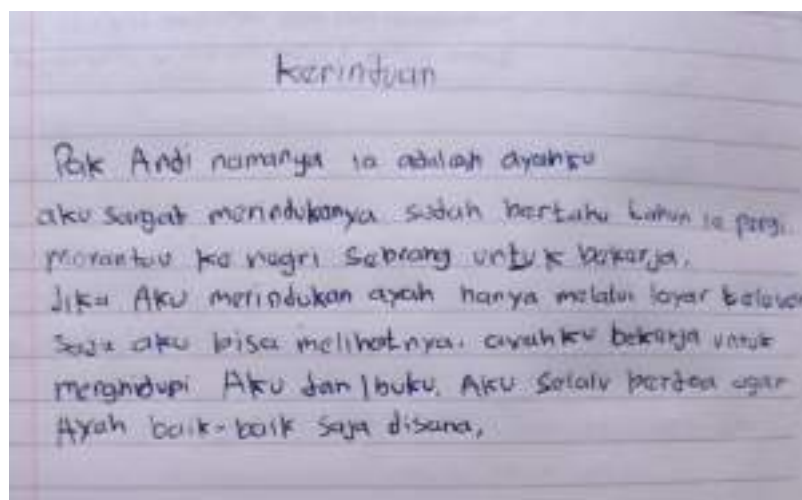 Kerinduan
Pak Andi namanya ia adalah ayahku
aku sangat merindukanya sudah bertahu tahun ia pergi
merantau ke negri sebrang untuk bekerja.
Jika Aku merindukan ayah hanya melalui layar
saja aku bisa melihatnya. ayahku bekerja untuk
menghidupi Aku dan Ibuku. Aku selalu berdoa agar
Ayah baik-baik saja disana,